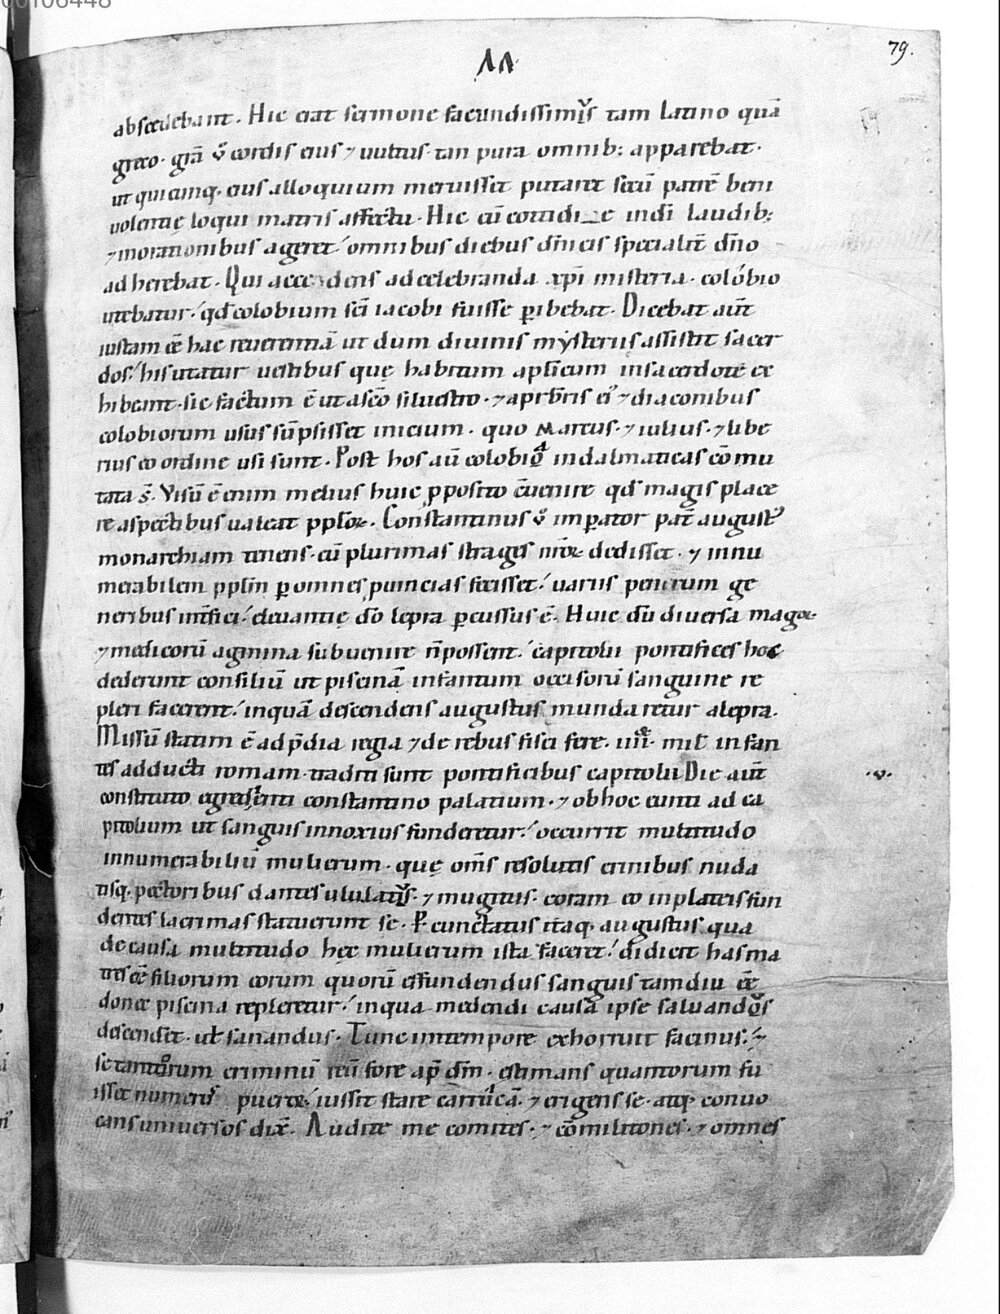 00106448
79.
abscedebant. Hic erat sermone facundissim᷒ tam latino quā
greco. grā ů cordis eius ⁊ uultus tan pura omnib; apparebat.
ut quicunq. eius alloquium meruisset putaret secū patrē beni
uolentię loqui matris affectu. Hic cū cottidi e indī laudib;
⁊ inorationibus ageret.' omnibus diebus dn̄icis specialit̄ dn̄o
adherebat. Qui accedens adcelebranda xp̄i misteria. colobio
utebatur.' qd̄ colobium sc̄i iacobi fuisse ꝑibebat. Dicebat aūt
iustam eē hac reuerentiā ut dum diuinis mẏsteriis assistit sacer
dos.' his utatur uestibus quę habitum aplicum insacerdote ex
hibeant. sic factum ē ut asc̄o siluestro. ⁊ apr̄bris ei᷒ ⁊ diaconibus
colobiorum usus sūpsisset inicium. quo marcus. ⁊ iulius. ⁊ libe
rius eo ordine usi sunt. Post hos aū colobia indalmaticas cōmu
tata s̄. Visū ē enim melius huic ꝓposito ēuenire qd̄ magis place
re aspectibus ualeat pplōꝝ. Constantinus ů imꝑator pat̄ august᷒
monarchiam tenens. cū plurimas strages nr̄oꝝ dedisset. ⁊ innu
merabilem pplm̄ ꝑ omnes ꝓuincias fecisset.' uariis penarum ge
neribus int̄fici.' eleuantię dō lepra ꝑcussus ē. Huic dū diuersa magoꝝ
⁊ medicorū agmina subuenire n̄ possent.' capitolii pontifices hoc
dederunt consiliū ut piscinā infantum occisorū sanguine re
pleri facerent.' inquā descendens augustus mundaretur alepra.
Missū statim ē ad p̄dia regia ⁊ de rebus fisci fere. iiii. mil infan
tes adducti romam. traditi sunt pontificibus capitolii Die aūt
constituto egredienti constantino palatium. ⁊ obhoc eunti ad ca
pitolium ut sanguis innoxius funderetur.' occurrit multitudo
innumerabiliū mulierum. quę om̄s resolutis crinibus nuda
tisq. pectoribus dantes ululat᷒. ⁊ mugitus. coram eo inplateis fun
dentes lacrimas statuerunt se. Pcunctatus itaq. augustus qua
de causa multitudo hec mulierum ista faceret.' didicit has ma
tres eē filiorum eorum quorū effundendus sanguis tamdiu eēt
donec piscina repleretur.' inqua medendi causa ipse saluand᷒
descendet. uł sanandus. Tunc imtempore exhorruit facinus. ⁊
se tantorum criminū reū fore ap̄ dm̄. estimans quantorum fu
isset numerus pueroꝝ.' iussit stare carrucā. ⁊ erigens se. atq; conuo
cans uniuersos dix̄. Audite me comites. ⁊ cōmilitones. ⁊ omnes